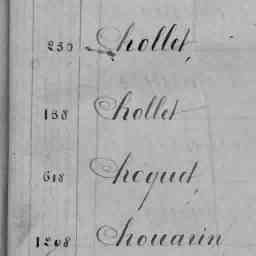 250 Chollet,
158 Chollet
618 Choquet,
1208 Chouarin